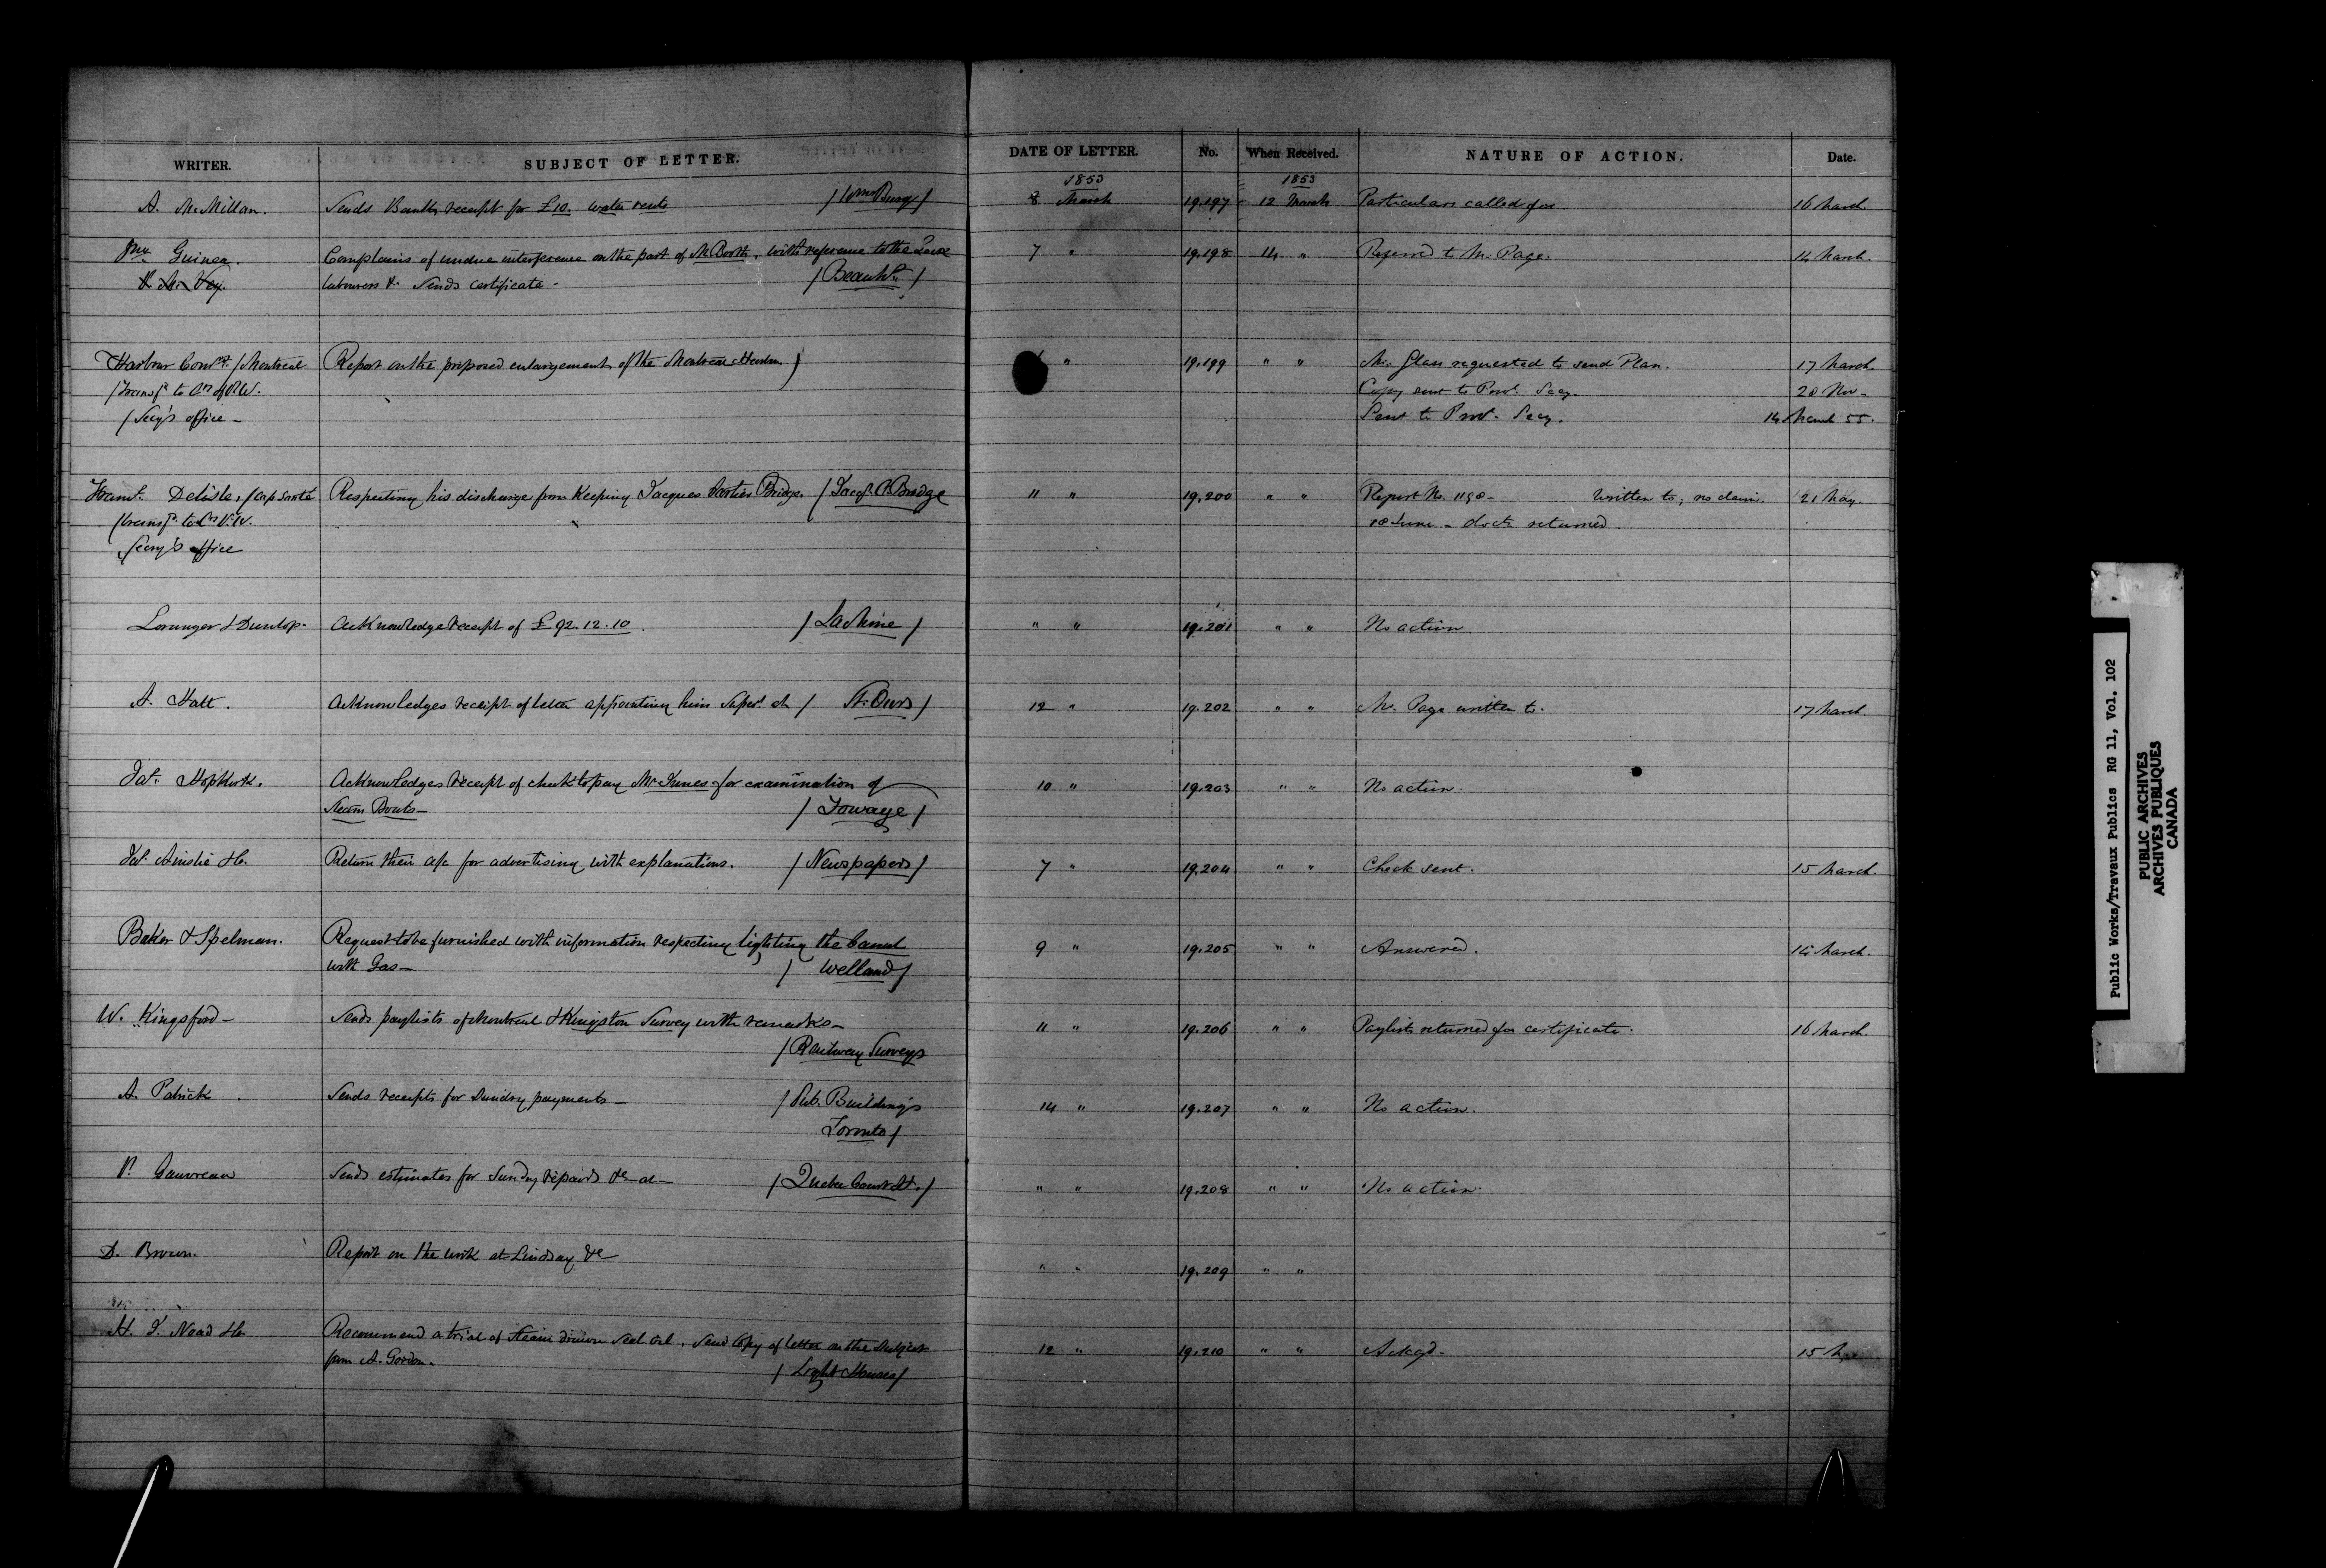 WRITER. SUBJECT OF LETTER. DATE OF LETTER. No. When Received. NATURE OF ACTION. Date.
1853 1853
A. McMillan. Sends Bank receipt for £10. water rents 8 March 19.197 12 March Particulars called for 16 March
Guinea. Complains of undue interference on the part of Mr Booth, with reference to the 7 " 19.198 14 " Referred to Mr. Page. 14 March.
labourers &. Sends certificate - / Beauhs. /
Harbour Comrs. / Montreal Report on the proposed enlargement of the Montreal Harbour / " 19.199 " " Mr. Glass requested to send Plan. 17 March.
Copy sent to Provl. Secy. 28 Nov -
/ Secy's office - Sent to Provl. Secy. 14 March 55.
Delisle, Respecting his discharge from Keeping Jacques Cartier Bridge. / Jacqs. C. Bridge 11 " 19.200 " " Report No. 1190 - Written to, no claim. 21 May.
18 June - docts returned
Secry's office
Loranger & Dunlop. Acknowledge receipt of £92.12.10. / Lachine / " " 19.201 " " No action.
A. Hatt. Acknowledges receipt of letter appointing him Supert. at / St. Ours / 12 " 19.202 " " Mr. Page written to. 17 March.
Jas. Hopkirk. Acknowledges receipt of check to pay Mr. Innes for examination of 10 " 19.203 " " No action.
Steam Boats - / Towage /
Jas. Ainslie & Co. Return their a/c for advertising with explanations. / Newspapers / 7 " 19.204 " " Check sent. 15 March.
Baker & Spelman. Request to be furnished with information respecting lighting the Canal 9 " 19.205 " " Answered. 14 March.
with Gas - / Welland /
W. Kingsford - Sends paylists of Montreal & Kingston Survey with remarks - 11 " 19.206 " " Paylists returned for certificate. 16 March.
/ Railway Surveys
A. Patrick Sends receipts for Sundry payments - / Pub. Buildings 14 " 19.207 " " No action.
Toronto /
P. Gauvreau Sends estimates for Sundry repairs &c at - / Quebec Court H. / " " 19.208 " " No action.
D. Brown. Report on the work at Lindsay &c " " 19.209 " "
H. J. Noad & Co. Recommend a trial of Steam drawn Seal oil. Send Copy of letter on the Subject 12 " 19.210 " " Ackgd - 15
from A. Gordon. / Light Houses /
Public Works/Travaux Publics RG 11, Vol. 102
PUBLIC ARCHIVES
ARCHIVES PUBLIQUES
CANADA